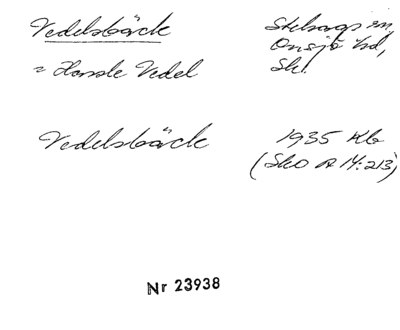 Vedelsbäck
Stehags sn,
Onsjö hd,
Sk.
= Hassle Vedel
Vedelsbäck
1935 Kb
(Sko A 14:213)
Nr 23938